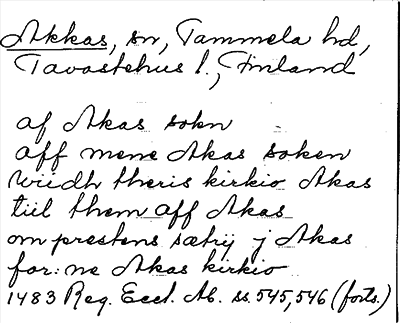 Akkas, sn, Tammela hd,
Tavastehus l., Finland
af Akas sokn
aff mene Akas soken
widh theris kirkio Akas
tiil them aff Akas
om prestens sætrij j Akas
for:ne Akas kirkio
1483 Reg. Eccl. Ab. ss. 545, 546 (forts.)